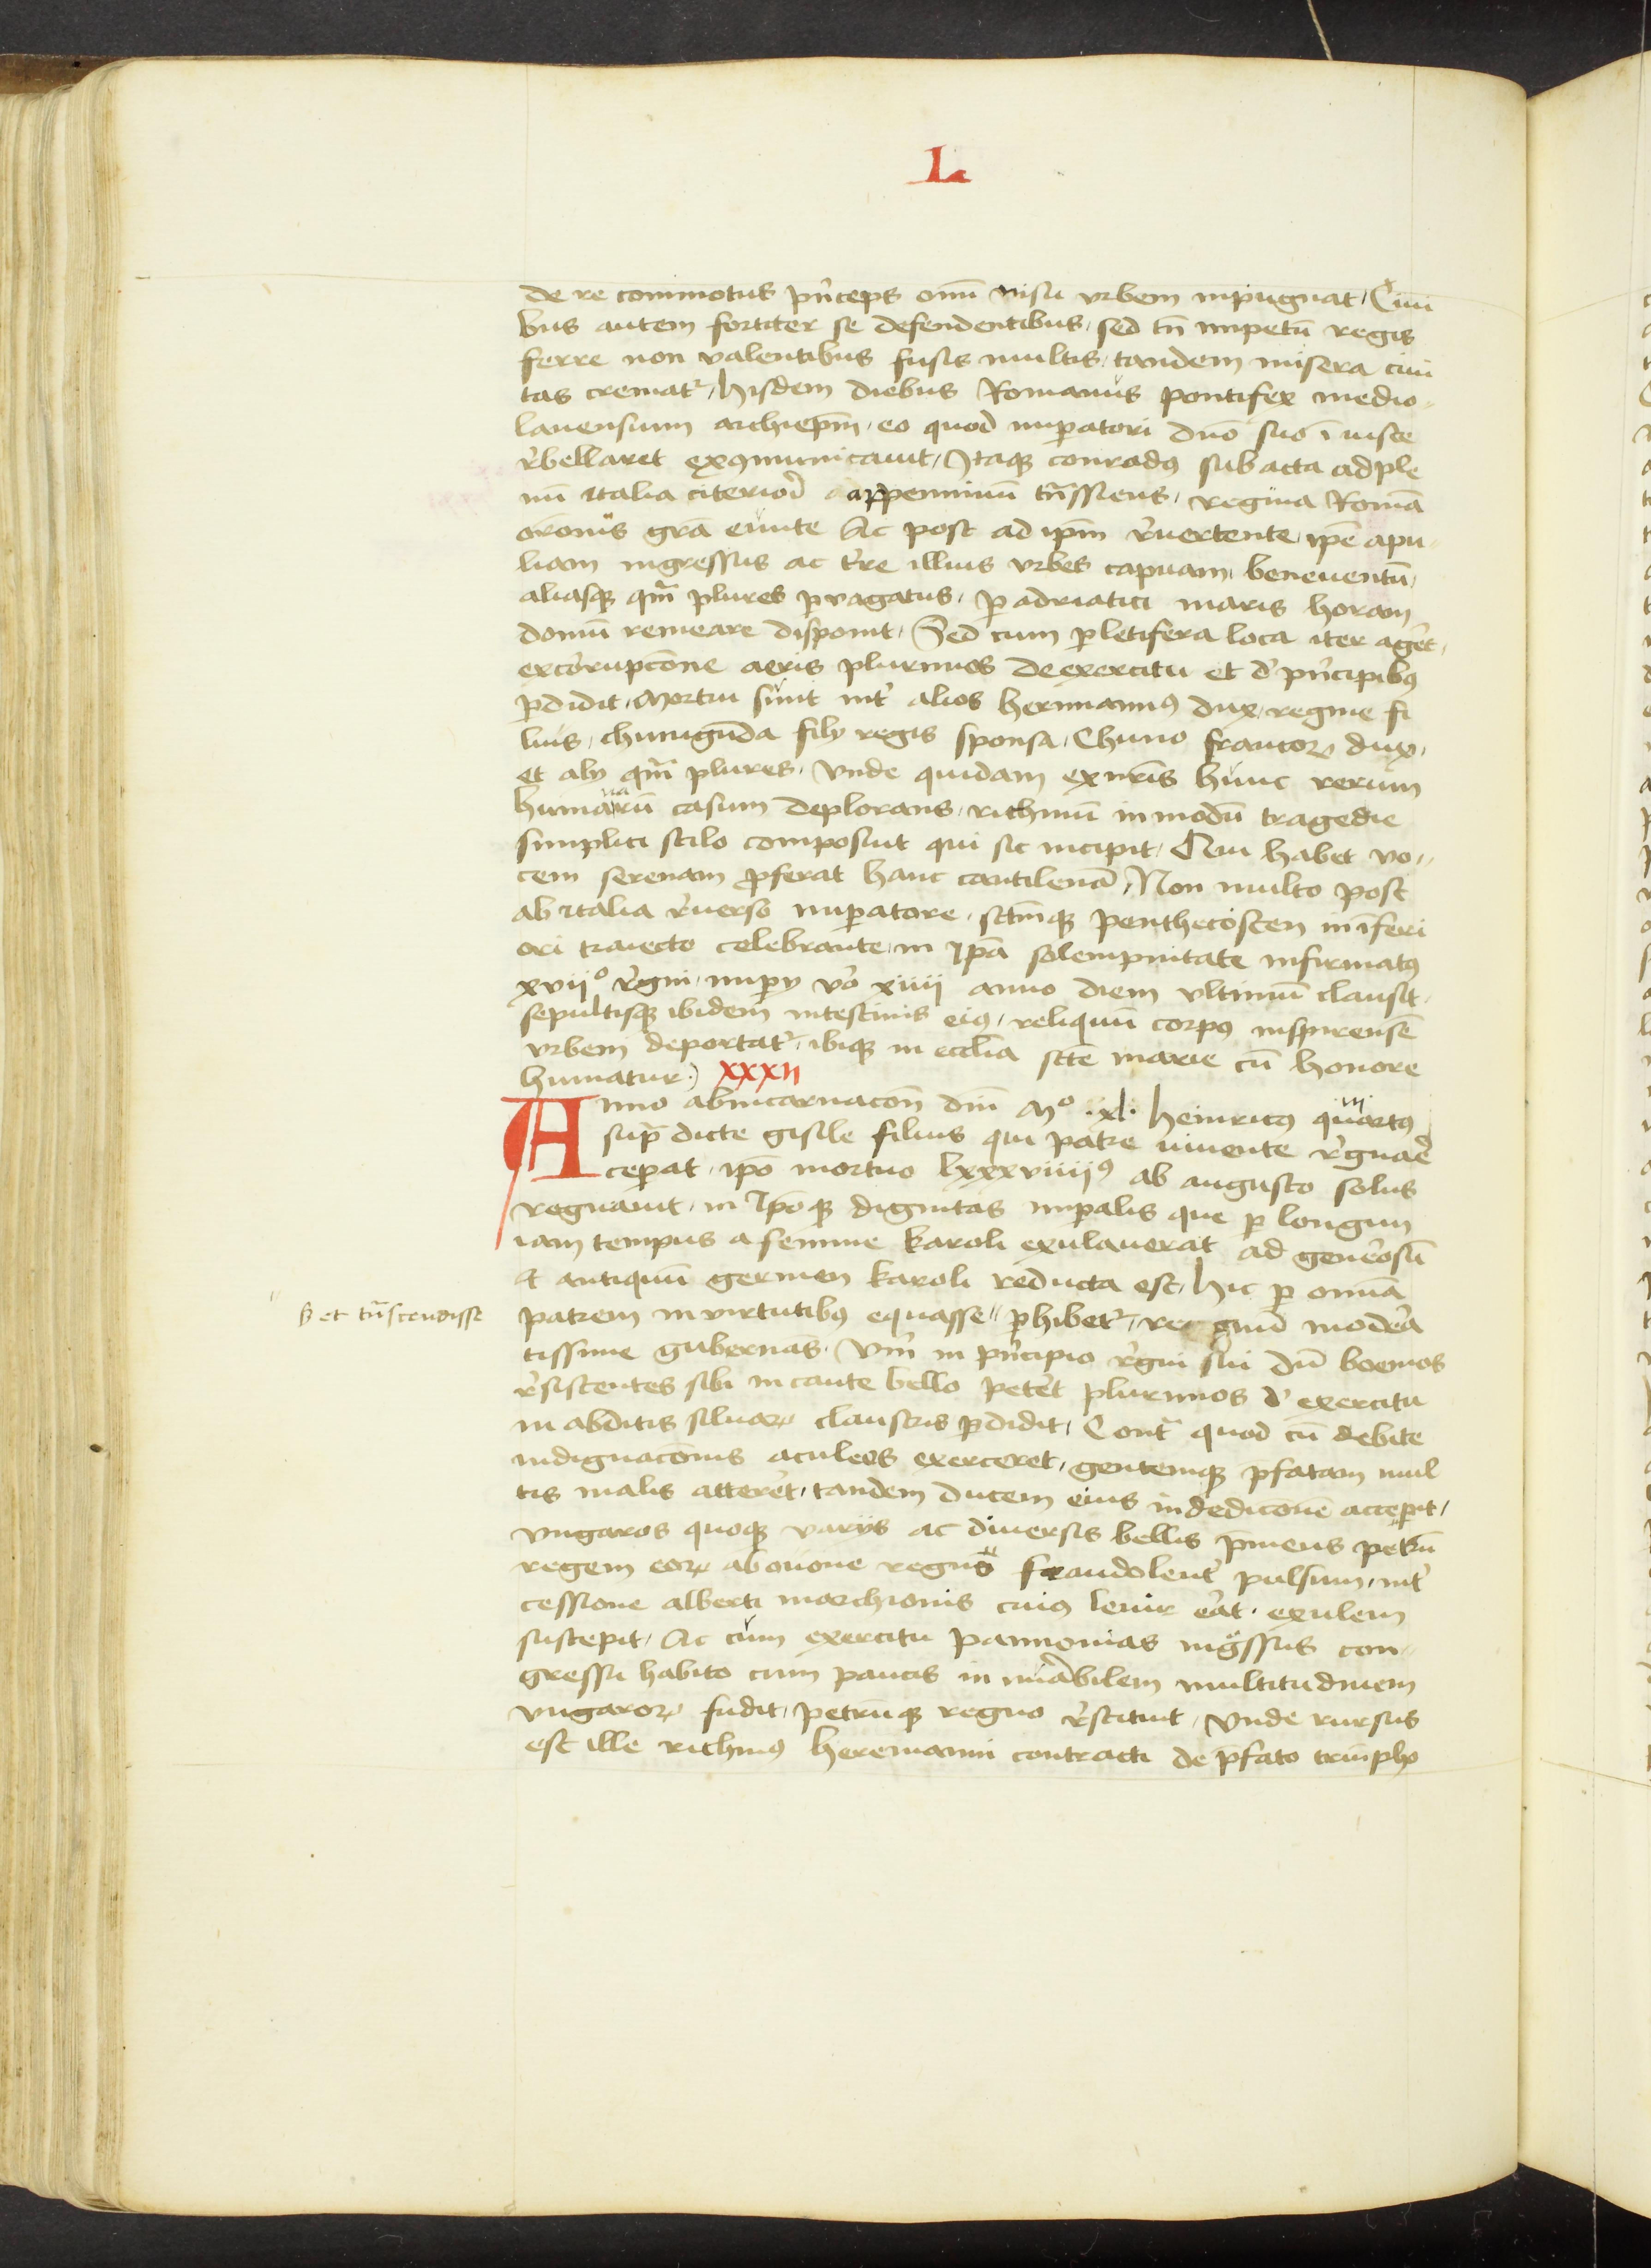 L
de re commotus pn̄ceps om̄i nisu vrbem inpugnat / Ciui
bus autem fortiter se defendentibus / sed tn̄ impetū regis
ferre non valentibus fusis multis / tandem misera ciui
tas crematᷣ / hisdem diebus Romanus pontifex medio„
lanensium archiepm̄ / eo quod imꝑatori dn̄o suo īiuste
r̄bellaret exꝯmunicauit / Itaqꝫ conradꝰ sub acta ad ple
nū italia citeriori appenninū tn̄ssiens / regina Romā
or̄onis grā eunte Ac post ad ip̄m r̄uertente ip̄e apu„
liam ingressus ac t̄re illius vrbes capuam beneuentū /
aliasqꝫ qm̄ plures ꝑvagatus / ꝑ adriatici maris horam
domū remeare disponit / Sed cum ꝑ letifera loca iter ager̄t /
ex corupcōne aeris plurimos de exercitu et d̓ pn̄cipibꝰ
ꝑdidit / Mortui sunt int̓ alios herimannꝰ dux / regine fi
lius / chunigūda filij regis sponsa / Chuno francoꝝ dux /
et alij qm̄ plures / Vnde quidam ex nr̄is hunc rerum
humanarū casum deplorans / rithmū in modū tragedie
simplici stilo composuit qui sic incipit / Qui habet vo„
cem serenam ꝓferat hanc cantilenā / Non multo post
ab italia r̄uerso imꝑatore / sctm̄qꝫ penthecosten in īferi
ori traiecto celebrante in ip̄a solempnitate infirmatꝰ
xvijº r̄gni / imꝑij v̄o xiiij anno diem vltimū clausit /
sepultisqꝫ ibidem intestinis eiꝰ / reliquū corpꝰ inspirensē
vrbem deportatᷣ / ibiqꝫ in eccl̄ia sctē marie cū honore
humatur·) XXXII
Anno ab incarnacōn dn̄i Mº ·xl· heinricꝰ quartꝰ iij
sup̄ dicte gisile filius qui patre viuente r̄gnare
ceꝑat / ip̄o mortuo lxxxviiijꝰ ab augusto solus
regnauit / in Ip̄oqꝫ dignitas imꝑalis que ꝑ longum
iam tempus a semine karoli exulauerat ad generosū
et antiquū germen karoli reducta est / hic ꝑ omnia
patrem in virtutibꝰ equasse „ ꝑhibetᷣ / regnū moder̄a
„ ꝭ et tn̄scendisse
tissime gubernās / Vn̄ in pn̄cipio r̄gni sui dū boemos
r̄sistentes sibi in caute bello peter̄t plurimos d̓ exercitu
in abditis siluaꝝ claustris ꝑdidit / Cont̄ quod cū debite
indignacōnis aculeos exerceret / gentemqꝫ p̄fatam mul
tis malis atterer̄t / tandem ducem eius in dedicōnē accepit /
Vngaros quoqꝫ varijs ac diuersis bellis p̄mens petrū
regem eoꝝ ab ouone regno fraudolent̓ pulsum / int̓
cessione alberti marchionis cuiꝰ leuir er̄at / exulem
suscepit / Ac cum exercitu pannonias ing̓ssus con„
gressu habito cum paucis in nūerabilem multitudinem
vngaroꝝ fudit / petrūqꝫ regno r̄stituit / Vnde rursus
est ille rithmꝰ heremanni contracti de p̄fato triūpho